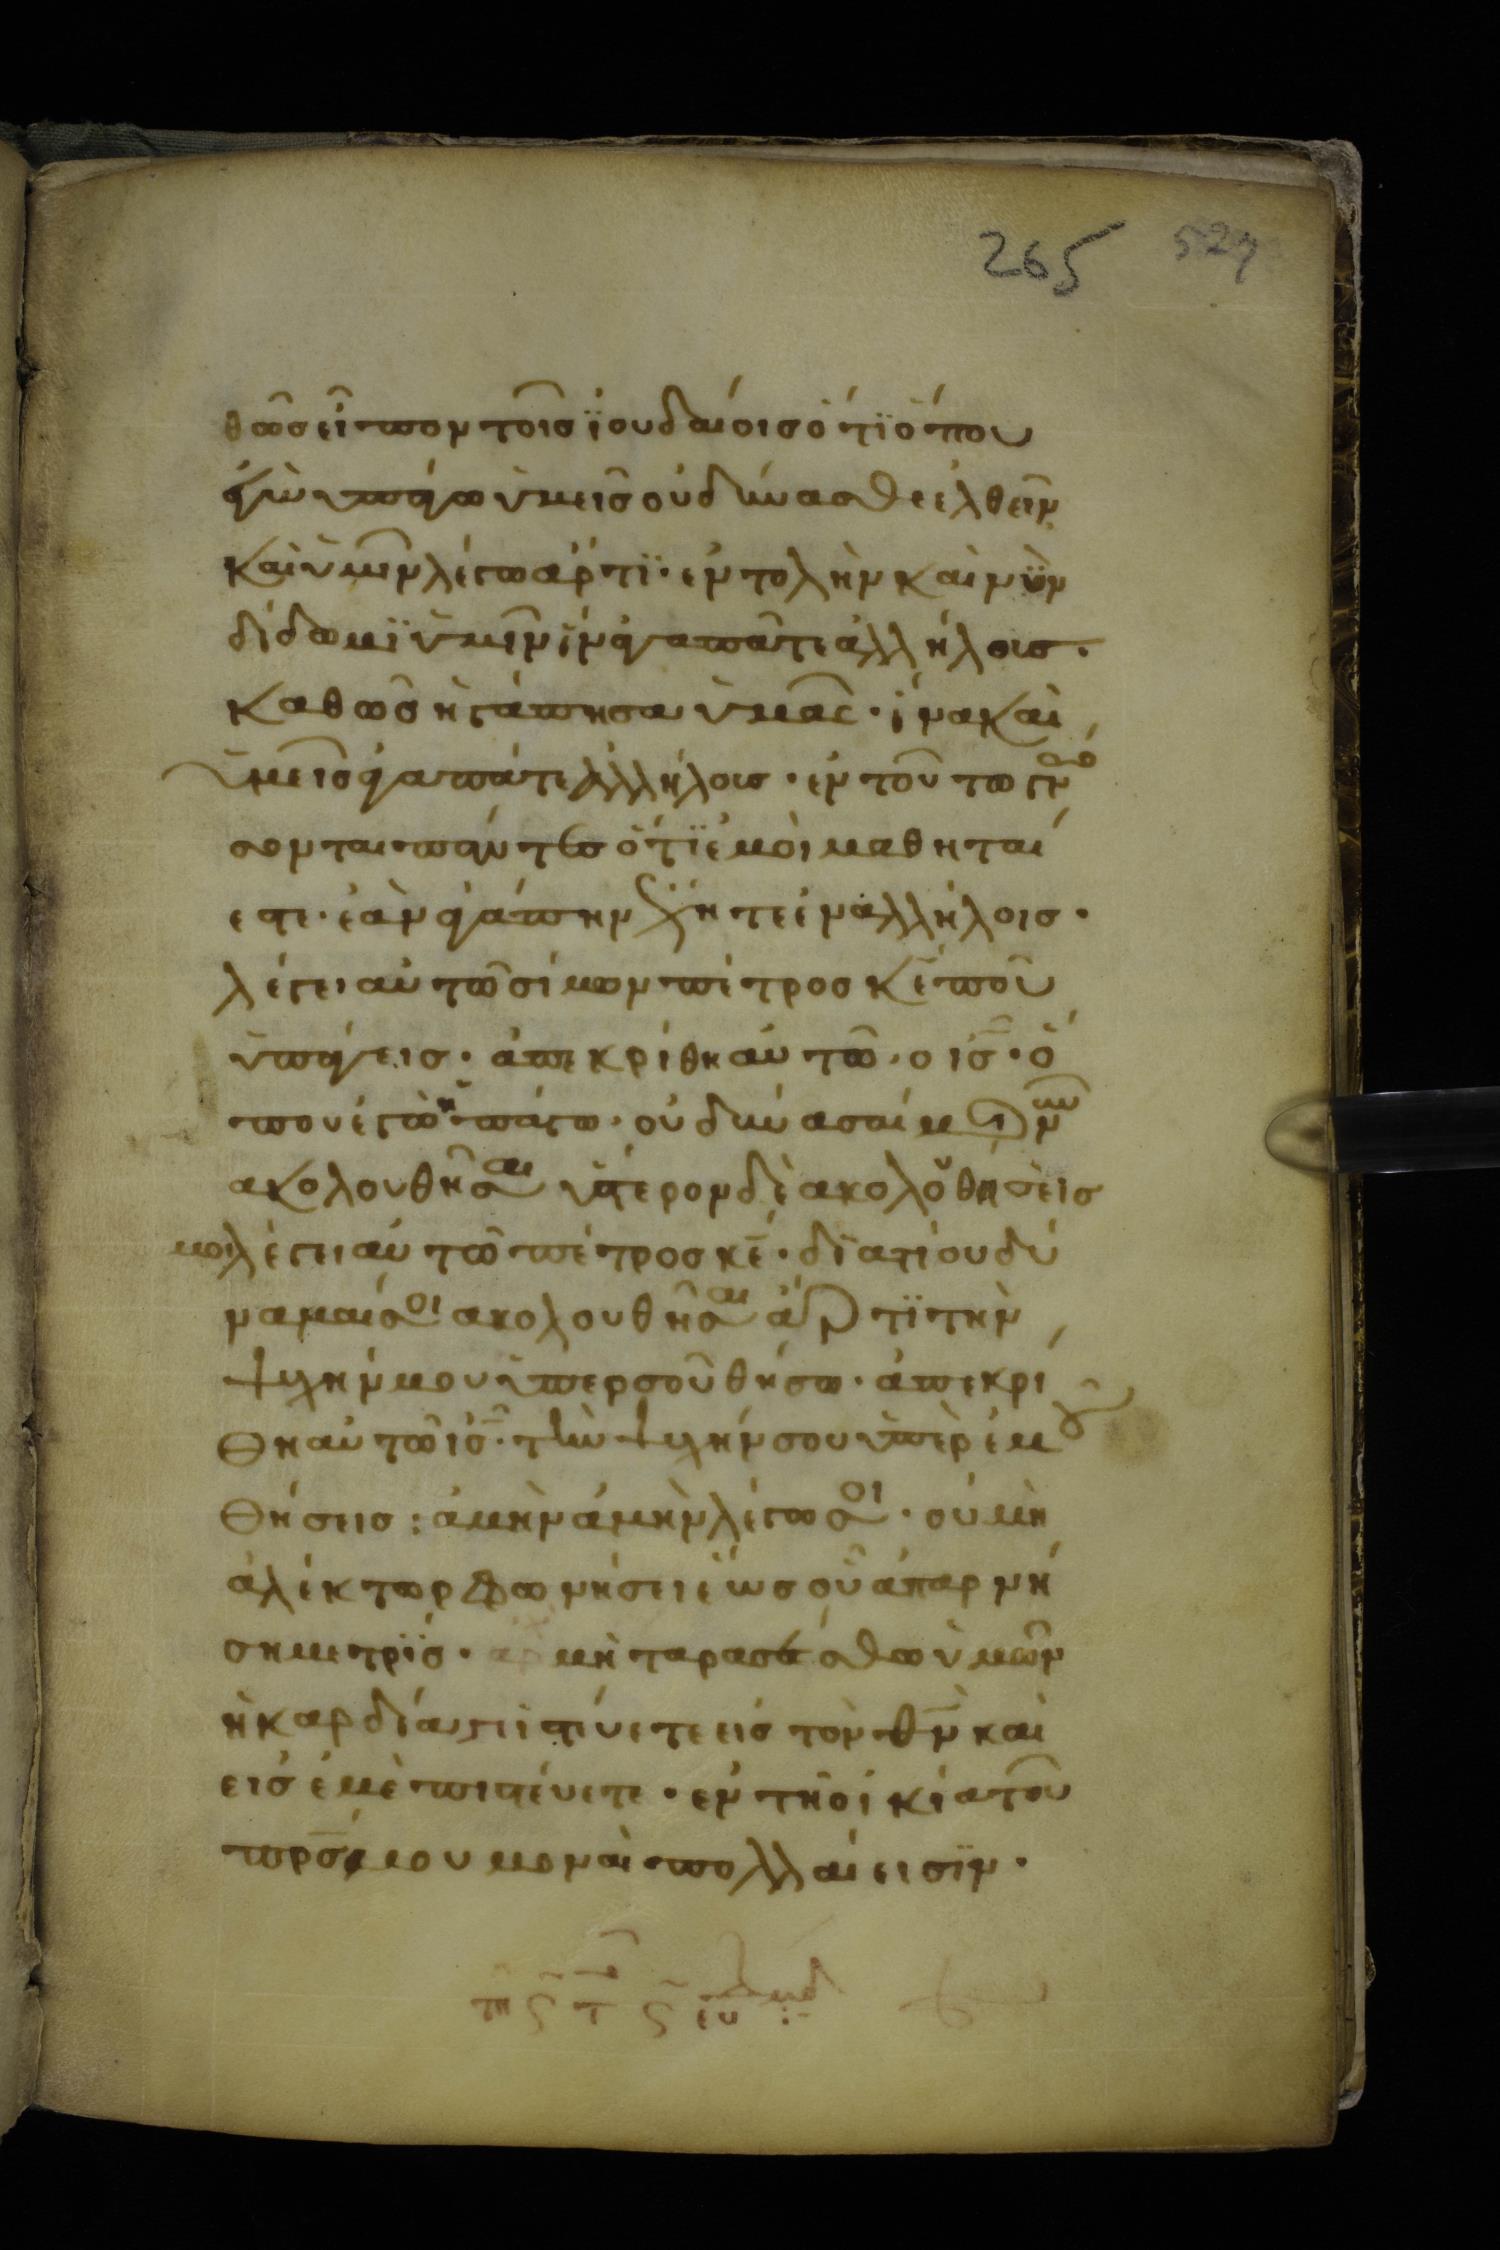 265 527
θῶς εἶπον τοῖς ϊουδαίοις ὅτϊ ὅπου
ἐγὼ ὑπάγω ὑμεῖς οὐ δύνασθε ἐλθεῖν
καὶ ὑμῖν λέγω ἄρτϊ· ἐντολὴν καινὴν
δίδωμϊ ὑμῖν ἵν ἀγαπᾶτε ἀλλήλοις·
καθῶς ἠγάπησα ὑμᾶς· ἵνα καὶ
ὑμεῖς ἀγαπᾶτε ἀλλήλοις· ἐν τούτω γνώ
σονται πάντες ὅτϊ ἐμοὶ μαθηταί
εστε· ἐὰν ἀγάπην ἔχητε ἐν ἀλλήλοις·
λέγει αὐτῶ σίμων πέτρος κε ποῦ
ὑπάγεις· ἀπεκρίθη αὐτῶ· ο ις· ὅ
που ἐγὼ ὑπάγω· οὐ δύνασαί μοι νῦν
ακολουθῆσαι ὕστερον δὲ ακολουθήσεις
μοι λέγει αὐτῶ πέτρος κε· δϊατί ου δύ
ναμαί σοι ακολουθῆσαι ἄρτϊ τὴν
ψυχήν μου ὑπερ σοῦ θήσω· ἀπεκρί
θη αὐτῶ ις· τὴν ψυχήν σου ὑπὲρ ἐμοῦ
θήσεις; ἀμὴν ἀμὴν λέγω σοι· οὐ μὴ
ἀλέκτωρ φωνήσει ἕως οὗ ἀπαρνή
ση με τρϊς· αρχ μὴ ταρασσέσθω ὑμῶν
ἡ καρδία πιστεύετε εἰς τὸν θν καὶ
εις ἐμὲ πιστεύετε· ἐν τῆ οἰκία τοῦ
πρς μου μοναὶ πολλαί εισϊν·